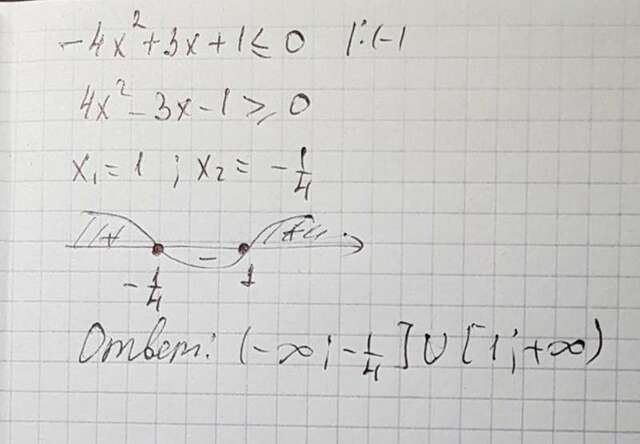 -4x² + 3x + 1 ≤ 0 |:(-1
4x² - 3x - 1 ≥ 0
x₁ = 1 ; x₂ = -1/4
+ - +
-1/4 1
Ответ: (-∞; -1/4] ∪ [1; +∞)